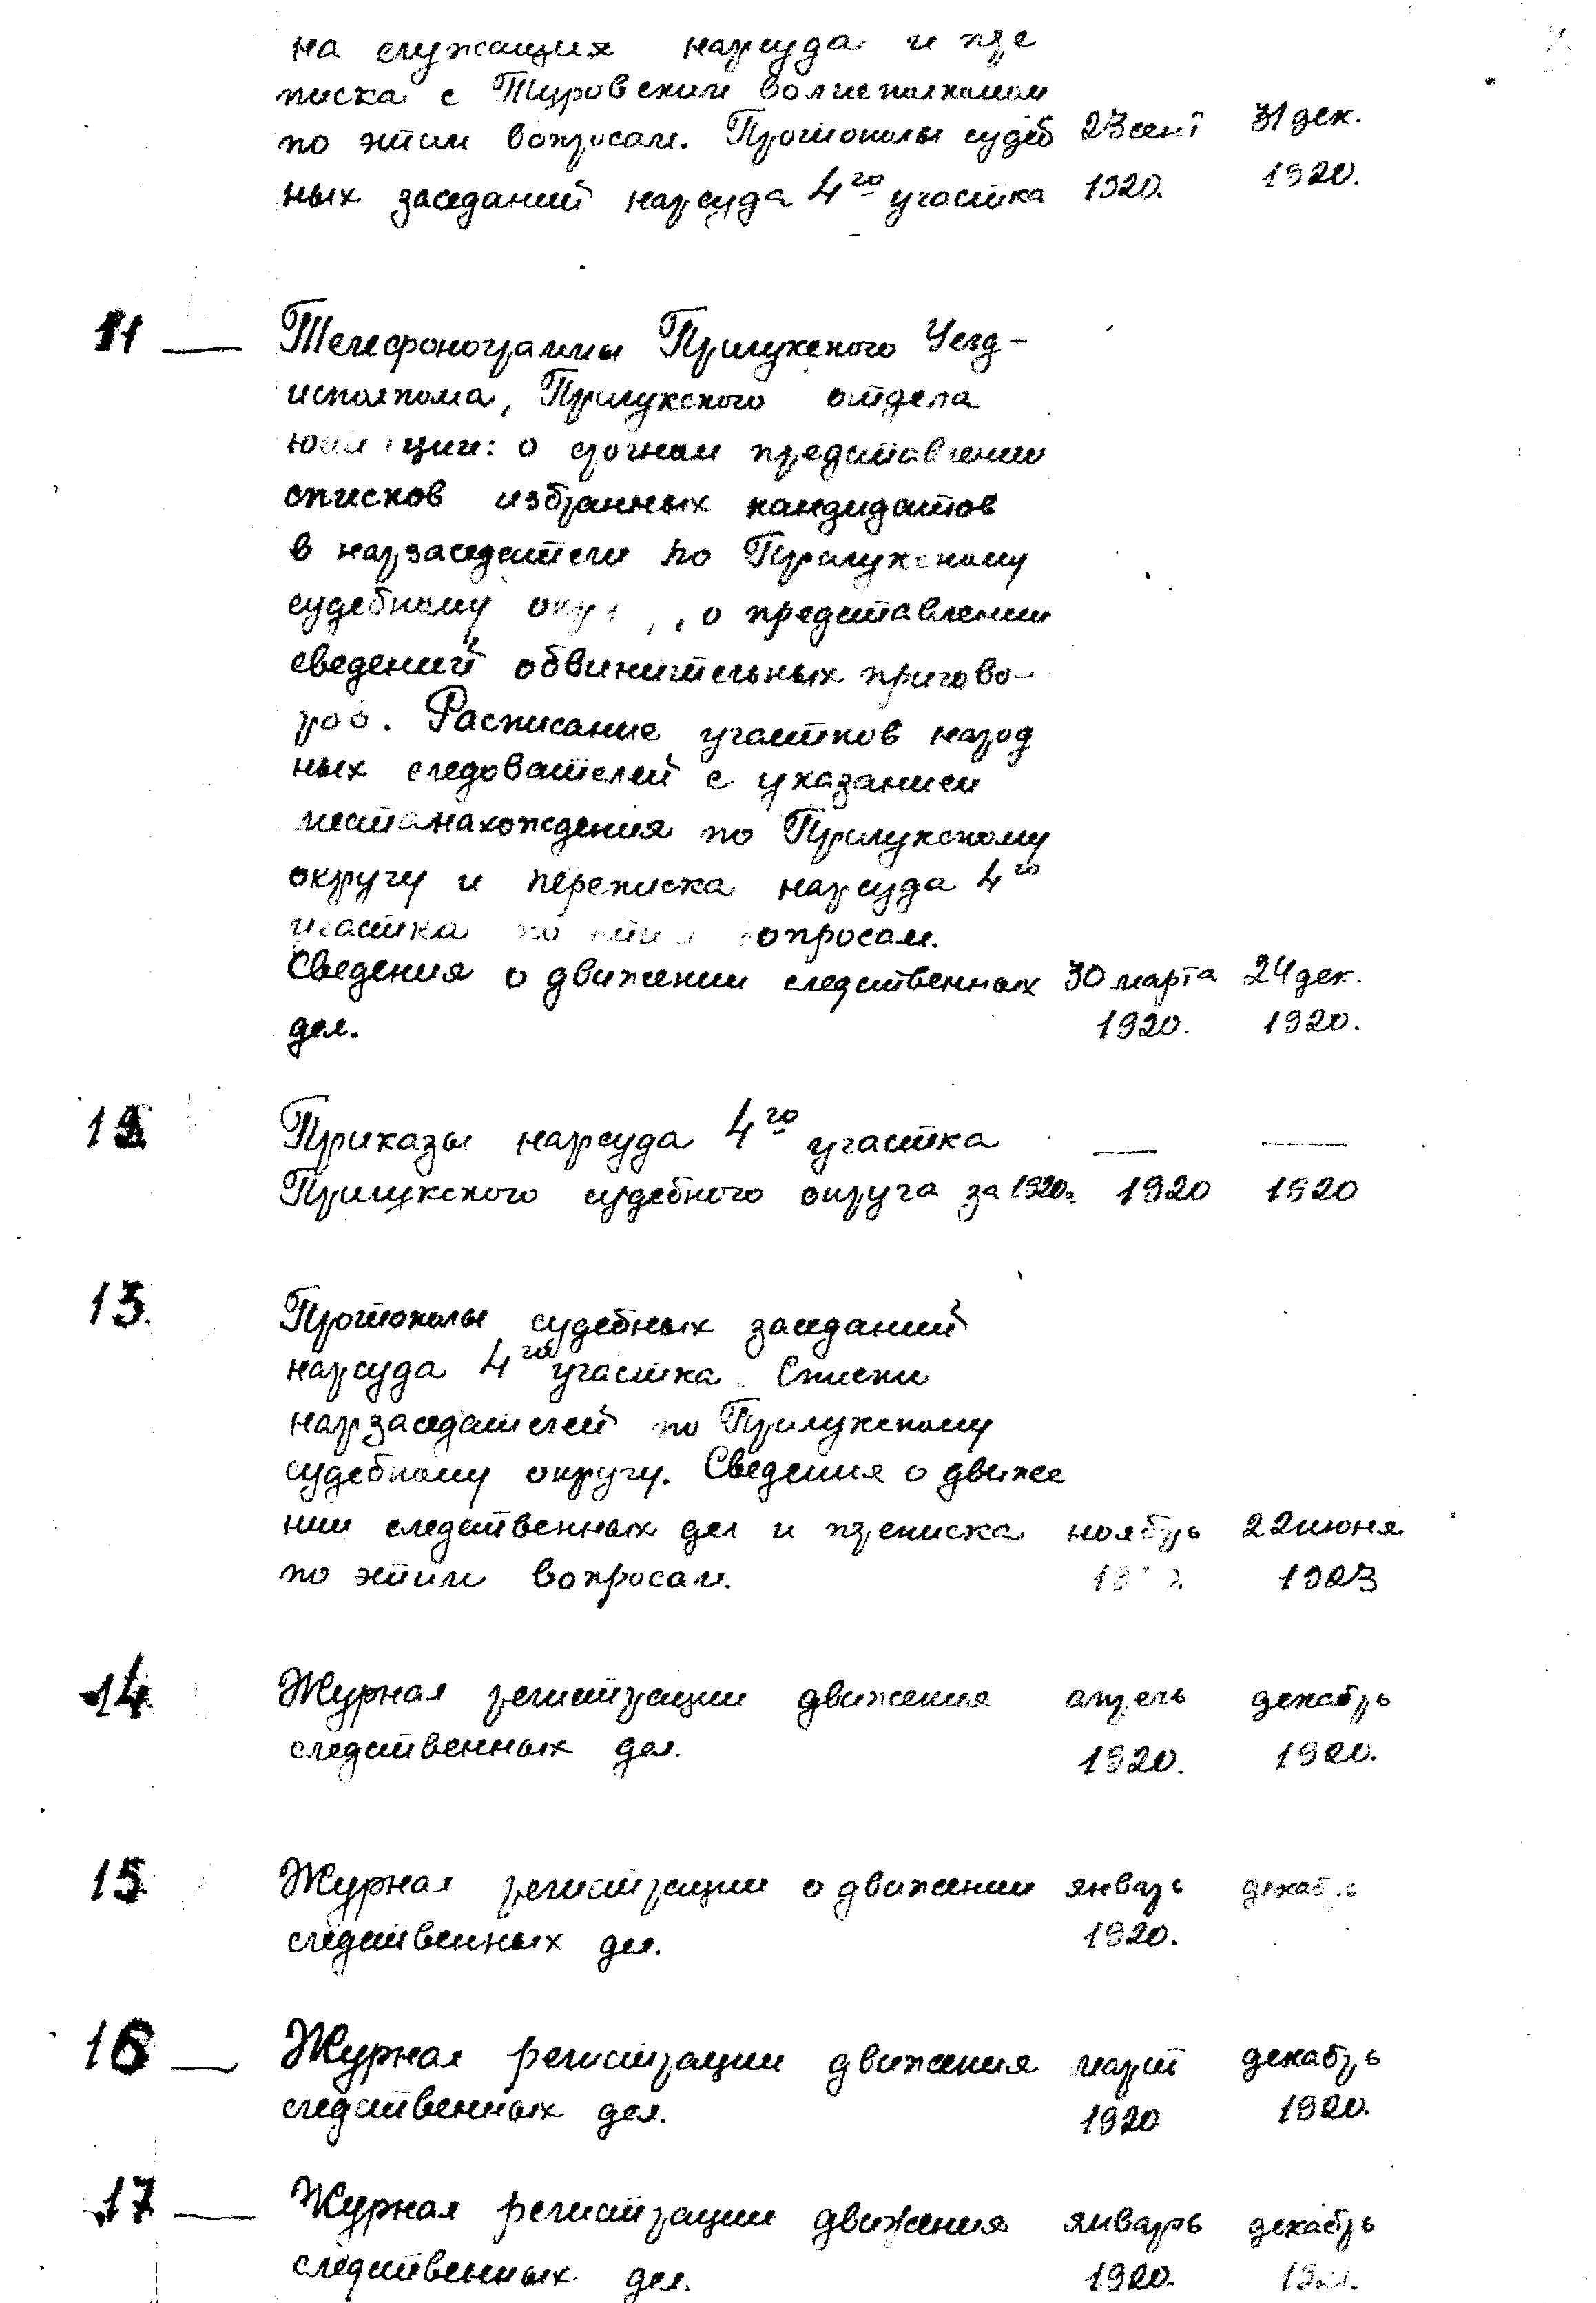 на служащих нарсуда и пере
писка с Туровским волисполкомом
по этим вопросам. Протоколы судеб 23 сент 31 дек.
ных заседаний нарсуда 4го участка 1920. 1920.
11 — Телефонограммы Прилукского Уезд-
исполкома, Прилукского отдела
юстиции: о срочном представлении
списков избранных кандидатов
в нарзаседатели по Прилукскому
судебному , о представлении
сведений обвинительных пригово-
ров. Расписание участков народ
ных следователей с указанием
местанахождения по Прилукскому
округу и переписка нарсуда 4го
участка по этим вопросам.
Сведения о движении следственных 30 марта 24 дек.
дел. 1920. 1920.
12 Приказы нарсуда 4го участка — —
Прилукского судебного округа за 1920г. 1920 1920
13. Протоколы судебных заседаний
нарсуда 4го участка. Списки
нарзаседателей по Прилукскому
судебному округу. Сведения о движе
нии следственных дел и переписка ноябрь 22 июня
по этим вопросам. 1923
14 Журнал регистрации движения апрель декабрь
следственных дел. 1920. 1920.
15 Журнал регистрации о движении январь декабрь
следственных дел. 1920.
16 — Журнал регистрации движения март декабрь
следственных дел. 1920 1920.
17 — Журнал регистрации движения январь декабрь
следственных дел. 1920.